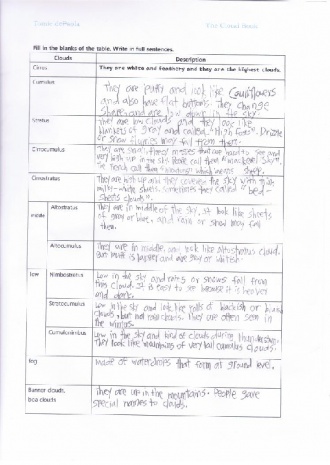 The Cloud Book
Fill in the blanks of the table. Write in full sentences.
Clouds Description
Cirrus They are white and feathery and they are the highest clouds.
Cumulus They are puffy and look like Cauliflowers
and also have flat bottoms. They change
Shapes and are low down in the sky.
Stratus They are low clouds and they look like
blankets of grey and called "High Fogs". Drizzle
or snow flurries may fall from them.
Cirrocumulus They are small that are hard to see and
very high up in the sky. People call them "Mackerel Sky".
The French call them which means sheep.
Cirrostratus They are high up and they cover the sky with
milky-white sheets. Sometimes they called "bed-
sheets clouds".
middle Altostratus They are in middle of the sky. It look like sheets
of gray or blue, and rain or snow may fall
then.
Altocumulus They are in middle, and look like altostratus cloud.
But more is and are gray or whitish.
low Nimbostratus Low in the sky and rains or snows fall from
this cloud. It is easy to see because it is heavier
and dark.
Stratocumulus Low in the sky and look like rolls of
clouds, but not rain clouds. They are often seen in
the winter.
Cumulonimbus Low in the sky and kind of clouds during thunderstorm.
They look like mountains of very tall cumulus clouds.
fog Made of water drops that form at ground level.
Banner clouds, They are up in the mountains. People gave
boa clouds special names to clouds.